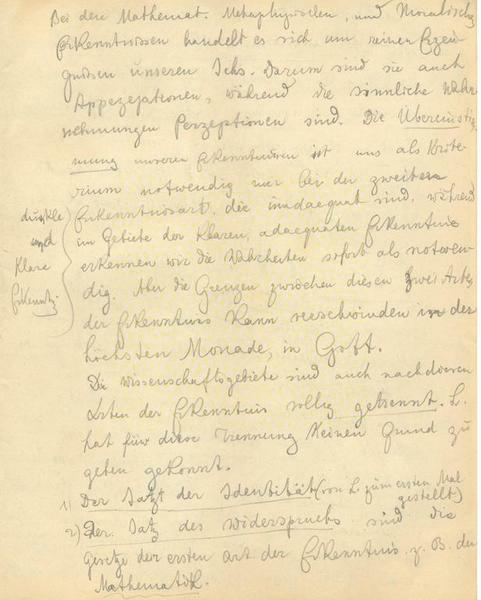 Bei den Mathemat. Metaphysischen, und Moralischen
Erkenntnissen handelt es sich um reinen Erzeu-
gnissen unseren Ichs. Darum sind sie auch
Appezeptionen, während die sinnliche Wahr-
nehmungen Perzeptionen sind. Die Übereinstim-
mung unseren Erkenntnissen ist uns als Krite-
rium notwendig nur bei der zweiten
Erkenntnisart, die inadaequat sind, während
im Gebiete der Klaren, adaequaten Erkenntnis
erkennen wir die Wahrheiten sofort als notwen-
dig. Aber die Grenzen zwischen diesen zwei Arten
der Erkenntnis kann verschwinden in der
höchsten Monade, in Gott.
dunkle
und
Klare
Erkenntn.
Die Wissenschaftsgebiete sind auch nach diesen
Arten der Erkenntnis völlig getrennt. L.
hat für diese Trennung keinen Grund zu
geben gekonnt.
1) Der Satzt der Identität (von L. zum ersten Mal
gestellt)
2) Der Satz des Widerspruchs sind die
Gesetze der ersten Art der Erkenntnis z. B. der
Mathematik.